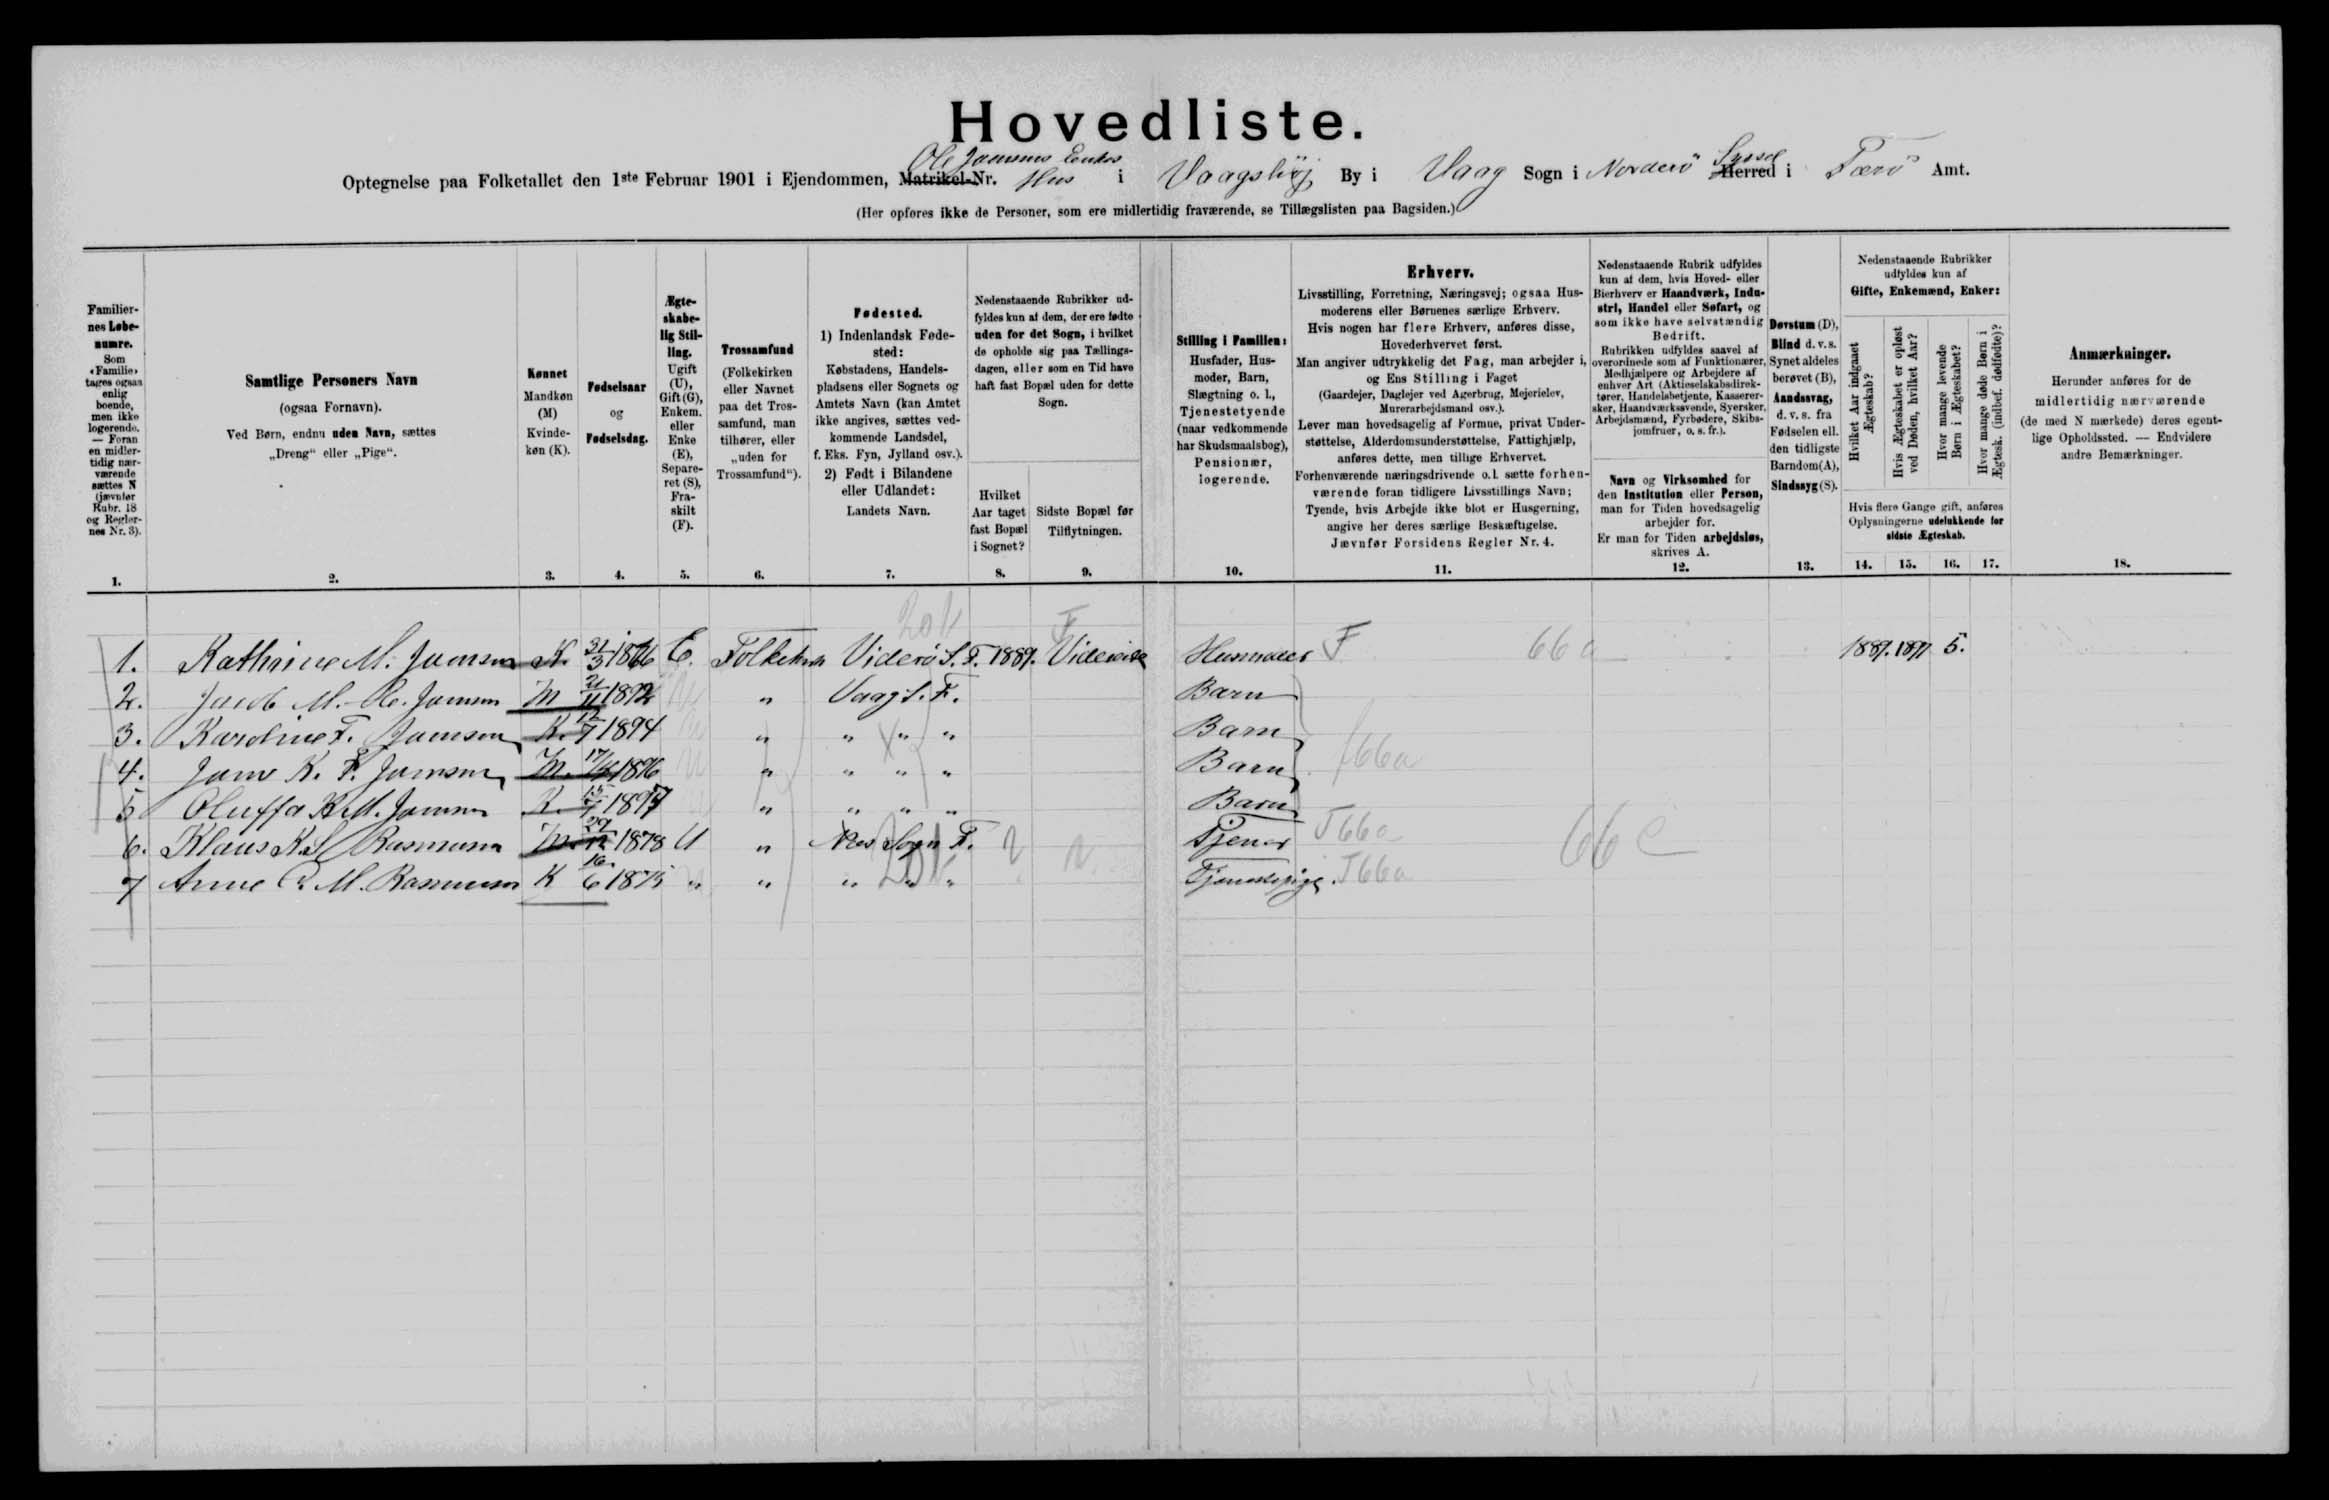 Hovedliste.
Ole Joensens Enkes Syssel
Optegnelse paa Folketallet den 1ste Februar 1901 i Ejendommen, Matrikel-Nr. Hus i Vaagsbøj By i Vaag Sogn i Norderö Herred i Færö Amt.
(Her opføres ikke de Personer, som ere midlertidig fraværende, se Tillægslisten paa Bagsiden.)
Familier-
nes Løbe-
numre.
Som
«Familie»
tages ogsaa
enlig
boende,
men ikke
logerende.
— Foran
en midler-
tidig nær-
værende
sættes N
(jævnfør
Rubr. 18
og Regler-
nes Nr. 3).
1.
Samtlige Personers Navn
(ogsaa Fornavn).
Ved Børn, endnu uden Navn, sættes
„Dreng“ eller „Pige“.
2.
Kønnet
Mandkøn
(M)
Kvinde-
køn (K).
3.
Fødselsaar
og
Fødselsdag.
4.
Ægte-
skabe-
lig Stil-
ling.
Ugift
(U),
Gift (G),
Enkem.
eller
Enke
(E),
Separe-
ret (S),
Fra-
skilt
(F).
5.
Trossamfund
(Folkekirken
eller Navnet
paa det Tros-
samfund, man
tilhører, eller
„uden for
Trossamfund“).
6.
Fødested.
1) Indenlandsk Føde-
sted:
Købstadens, Handels-
pladsens eller Sognets og
Amtets Navn (kan Amtet
ikke angives, sættes ved-
kommende Landsdel,
f. Eks. Fyn, Jylland osv.).
2) Født i Bilandene
eller Udlandet:
Landets Navn.
7.
Nedenstaaende Rubrikker ud-
fyldes kun af dem, der ere fødte
uden for det Sogn, i hvilket
de opholde sig paa Tællings-
dagen, eller som en Tid have
haft fast Bopæl uden for dette
Sogn.
Hvilket
Aar taget
fast Bopæl
i Sognet?
8.
Sidste Bopæl før
Tilflytningen.
9.
Stilling i Familien:
Husfader, Hus-
moder, Barn,
Slægtning o. l.,
Tjenestetyende
(naar vedkommende
har Skudsmaalsbog),
Pensionær,
logerende.
10.
Erhverv.
Livsstilling, Forretning, Næringsvej; ogsaa Hus-
moderens eller Børnenes særlige Erhverv.
Hvis nogen har flere Erhverv, anføres disse,
Hovederhvervet først.
Man angiver udtrykkelig det Fag, man arbejder i,
og Ens Stilling i Faget
(Gaardejer, Daglejer ved Agerbrug, Mejerielev,
Murerarbejdsmand osv.).
Lever man hovedsagelig af Formue, privat Under-
støttelse, Alderdomsunderstøttelse, Fattighjælp,
anføres dette, men tillige Erhvervet.
Forhenværende næringsdrivende o. l. sætte forhen-
værende foran tidligere Livsstillings Navn;
Tyende, hvis Arbejde ikke blot er Husgerning,
angive her deres særlige Beskæftigelse.
Jævnfør Forsidens Regler Nr. 4.
11.
Nedenstaaende Rubrik udfyldes
kun af dem, hvis Hoved- eller
Bierhverv er Haandværk, Indu-
stri, Handel eller Søfart, og
som ikke have selvstændig
Bedrift.
Rubrikken udfyldes saavel af
overordnede som af Funktionærer,
Medhjælpere og Arbejdere af
enhver Art (Aktieselskabsdirek-
tører, Handelsbetjente, Kasserer-
sker, Haandværkssvende, Syersker,
Arbejdsmænd, Fyrbødere, Skibs-
jomfruer, o. s. fr.).
Navn og Virksomhed for
den Institution eller Person,
man for Tiden hovedsagelig
arbejder for.
Er man for Tiden arbejdsløs,
skrives A.
12.
Døvstum (D),
Blind d. v. s.
Synet aldeles
berøvet (B),
Aandssvag,
d. v. s. fra
Fødselen ell.
den tidligste
Barndom (A),
Sindssyg (S).
13.
Nedenstaaende Rubrikker
udfyldes kun af
Gifte, Enkemænd, Enker:
Hvilket Aar indgaaet
Ægteskab?
Hvis Ægteskabet er opløst
ved Døden, hvilket Aar?
Hvor mange levende
Børn i Ægteskabet?
Hvor mange døde Børn i
Ægtesk. (indbef. dødfødte)?
Hvis flere Gange gift, anføres
Oplysningerne udelukkende for
sidste Ægteskab.
14. 15. 16. 17.
Anmærkninger.
Herunder anføres for de
midlertidig nærværende
(de med N mærkede) deres egent-
lige Opholdssted. — Endvidere
andre Bemærkninger.
18.
20 k F
1. Kathrine M. Joensen K. 31/3 1866 E. Folkekirk Viderö S. F. 1889. Videreide Husmoder F 66 a 1889. 1897 5.
2. Jacob M. Joensen M 21/11 1892 U „ Vaag S. F. Barn
3. Karoline F. Joensen K. 12/7 1894 U „ „ „ „ Barn
4. K. F. Joensen M. 1896 U „ „ „ „ Barn 66a
5 Oluffa K. M. Joensen K. 1897 U „ „ „ „ Barn
6. Klaus K. S. Rasmussen M. 29/12 1878 U „ Næs Sogn F. ? Tjener T66a 66 C
7 Anne M. Rasmussen K 16/6 1875 „ „ „ „ „ 20 k Tjenestepige. T66a